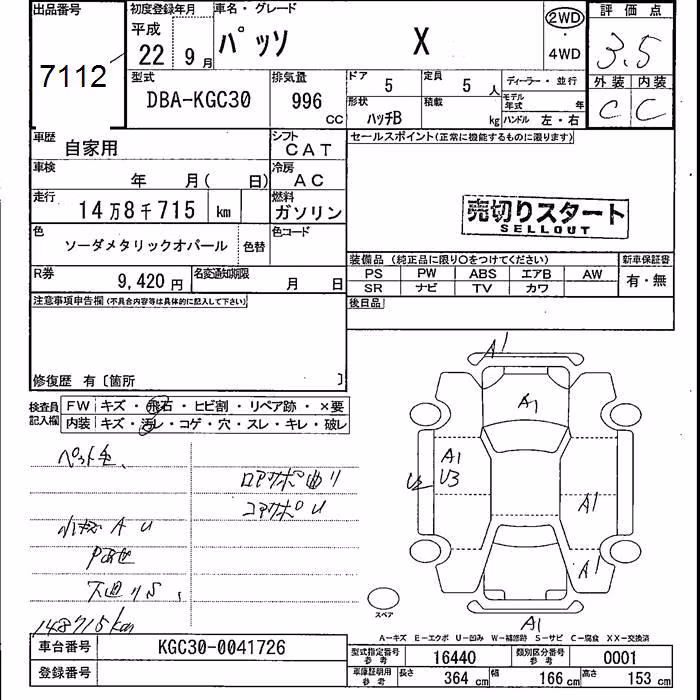 出品番号
7112
初度登録年月
平成
22 9月
車名・グレード
パッソ X
2WD
・
4WD
評価点
3.5
外装 内装
C C
型式
DBA-KGC30
排気量
996
CC
ドア
5
定員
5 人
ディーラー・並行
モデル年式 年
形状
ハッチB
積載
kg
ハンドル 左・右
車歴
自家用
シフト
CAT
車検
年 月( 日)
冷房
AC
走行
14万8千715 km
燃料
ガソリン
色
ソーダメタリックオパール
色替
色コード
R券
9,420円
名変通知期限
月 日
セールスポイント(正常に機能するものに限ります)
売切りスタート
SELLOUT
装備品 (純正品に限り〇をつけてください)
新車保証書
PS PW ABS エアB AW
有・無
SR ナビ TV カワ
後日品
注意事項申告欄 (不具合内容等は具体的に記入して下さい)
修復歴 有〔箇所 〕
検査員
記入欄
FW キズ・飛石・ヒビ割・リペア跡・×要
内装 キズ・汚レ・コゲ・穴・スレ・キレ・破レ
ロアサポ曲り
コアサポU
A U
148715km
A1
A1
A1
U3
U2
A1
A1
A1
スペア
A-キズ E-エクボ U-凹み W-補修跡 S-サビ C-腐食 XX-交換済
車台番号
KGC30-0041726
登録番号
型式指定番号
参考
16440
類別区分番号
参考
0001
車庫証明用
参考
長さ
364 cm
幅
166 cm
高さ
153 cm